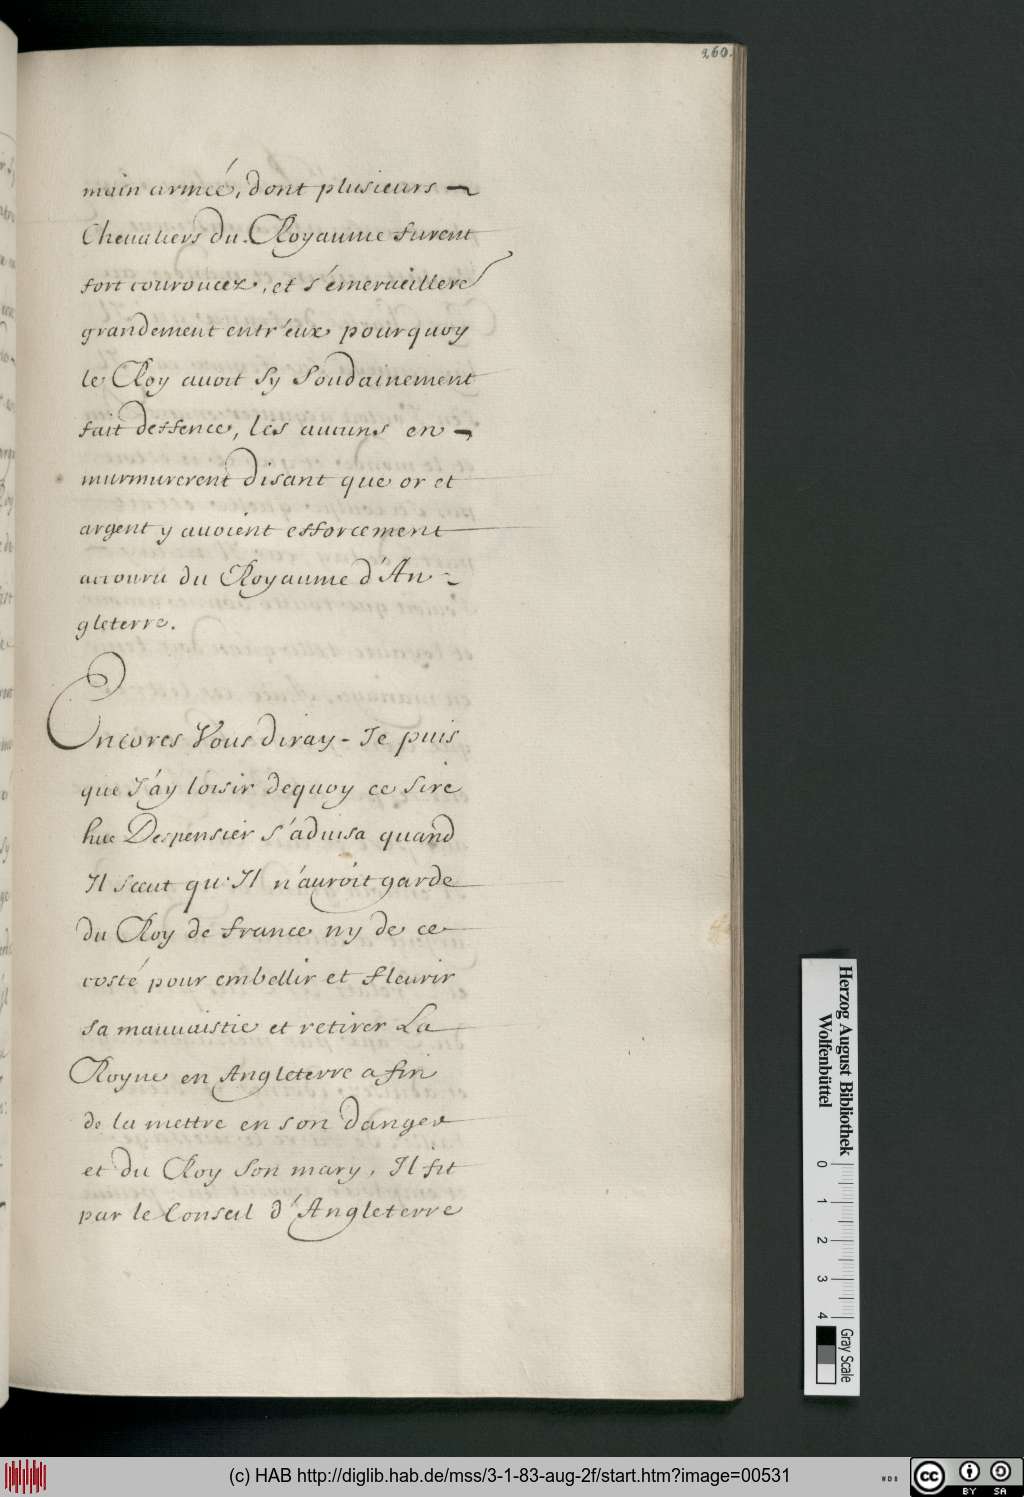 260.
main armeé, dont plusieurs
Chevaliers du Royaume furent
fort couroucez, et s'émerveillere
grandement entr'eux pourquoy
le Roy avoit sy soudainement
fait deffence, les aucuns en
murmurerent disant que or et
argent y avoient efforcement
accouru du Royaume d'An-
gleterre.
Encores Vous diray-Je puis
que J'ay loisir dequoy ce sire
hue Despensier s'advisa quand
Il sceut qu'Il n'auroit garde
du Roy de france ny de ce
costé pour embellir et fleurir
sa mauvaistie et retirer La
Royne en Angleterre afin
de la mettre en son danger
et du Roy son mary, Il fit
par le Conseil d'Angleterre
Herzog August Bibliothek
Wolfenbüttel
0 1 2 3 4
Gray Scale
(c) HAB http://diglib.hab.de/mss/3-1-83-aug-2f/start.htm?image=00531
cc BY SA